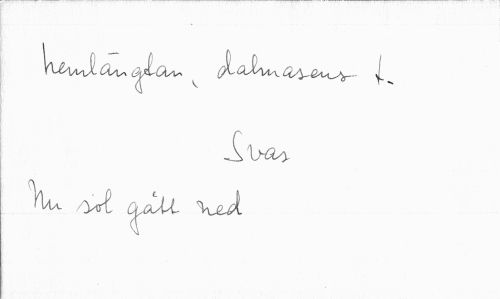 hemlängtan, dalmasens t.
Svas
Nu sol gått ned